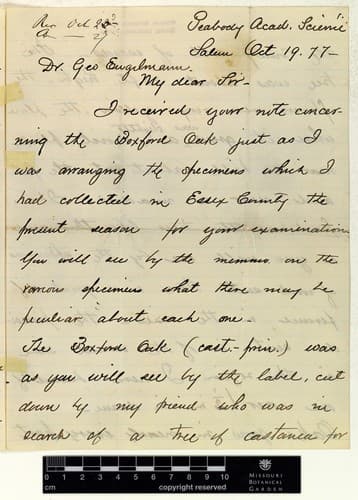 Rec Oct 22
Peabody Acad. Science
Salem Oct 19. 77-
Dr. Geo Engelmann.
My dear Sir-
I received your note concer-
ning the Boxford Oak just as I
was arranging the specimens which I
had collected in Essex County the
present season for your examination
You will see by the memms. on the
various specimens what there may be
peculiar about each one-
The Boxford Oak (cast.-prin.) was
as you will see by the label, cut
down by my friend who was in
search of a tree of castanea for
cm
0 1 2 3 4 5 6 7 8 9 10
copyright reserved
MISSOURI
BOTANICAL
GARDEN